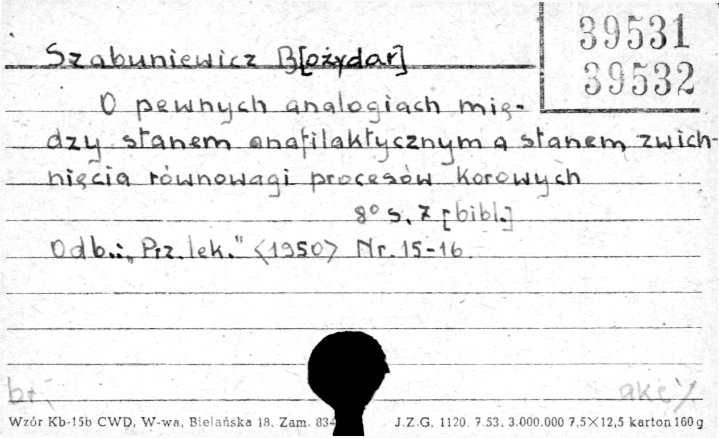 39531
39532
Szabuniewicz B[ożydar]
O pewnych analogiach mię-
dzy stanem anafilaktycznym a stanem zwich-
nięcia równowagi procesów korowych
8° s. 7 [bibl.]
Odb.: „Prz. lek." <1950> Nr. 15-16.
br. akc
Wzór Kb-15b CWD, W-wa, Bielańska 18. Zam. 834 J.Z.G. 1120. 7.53. 3.000.000 7,5×12,5 karton 160 g